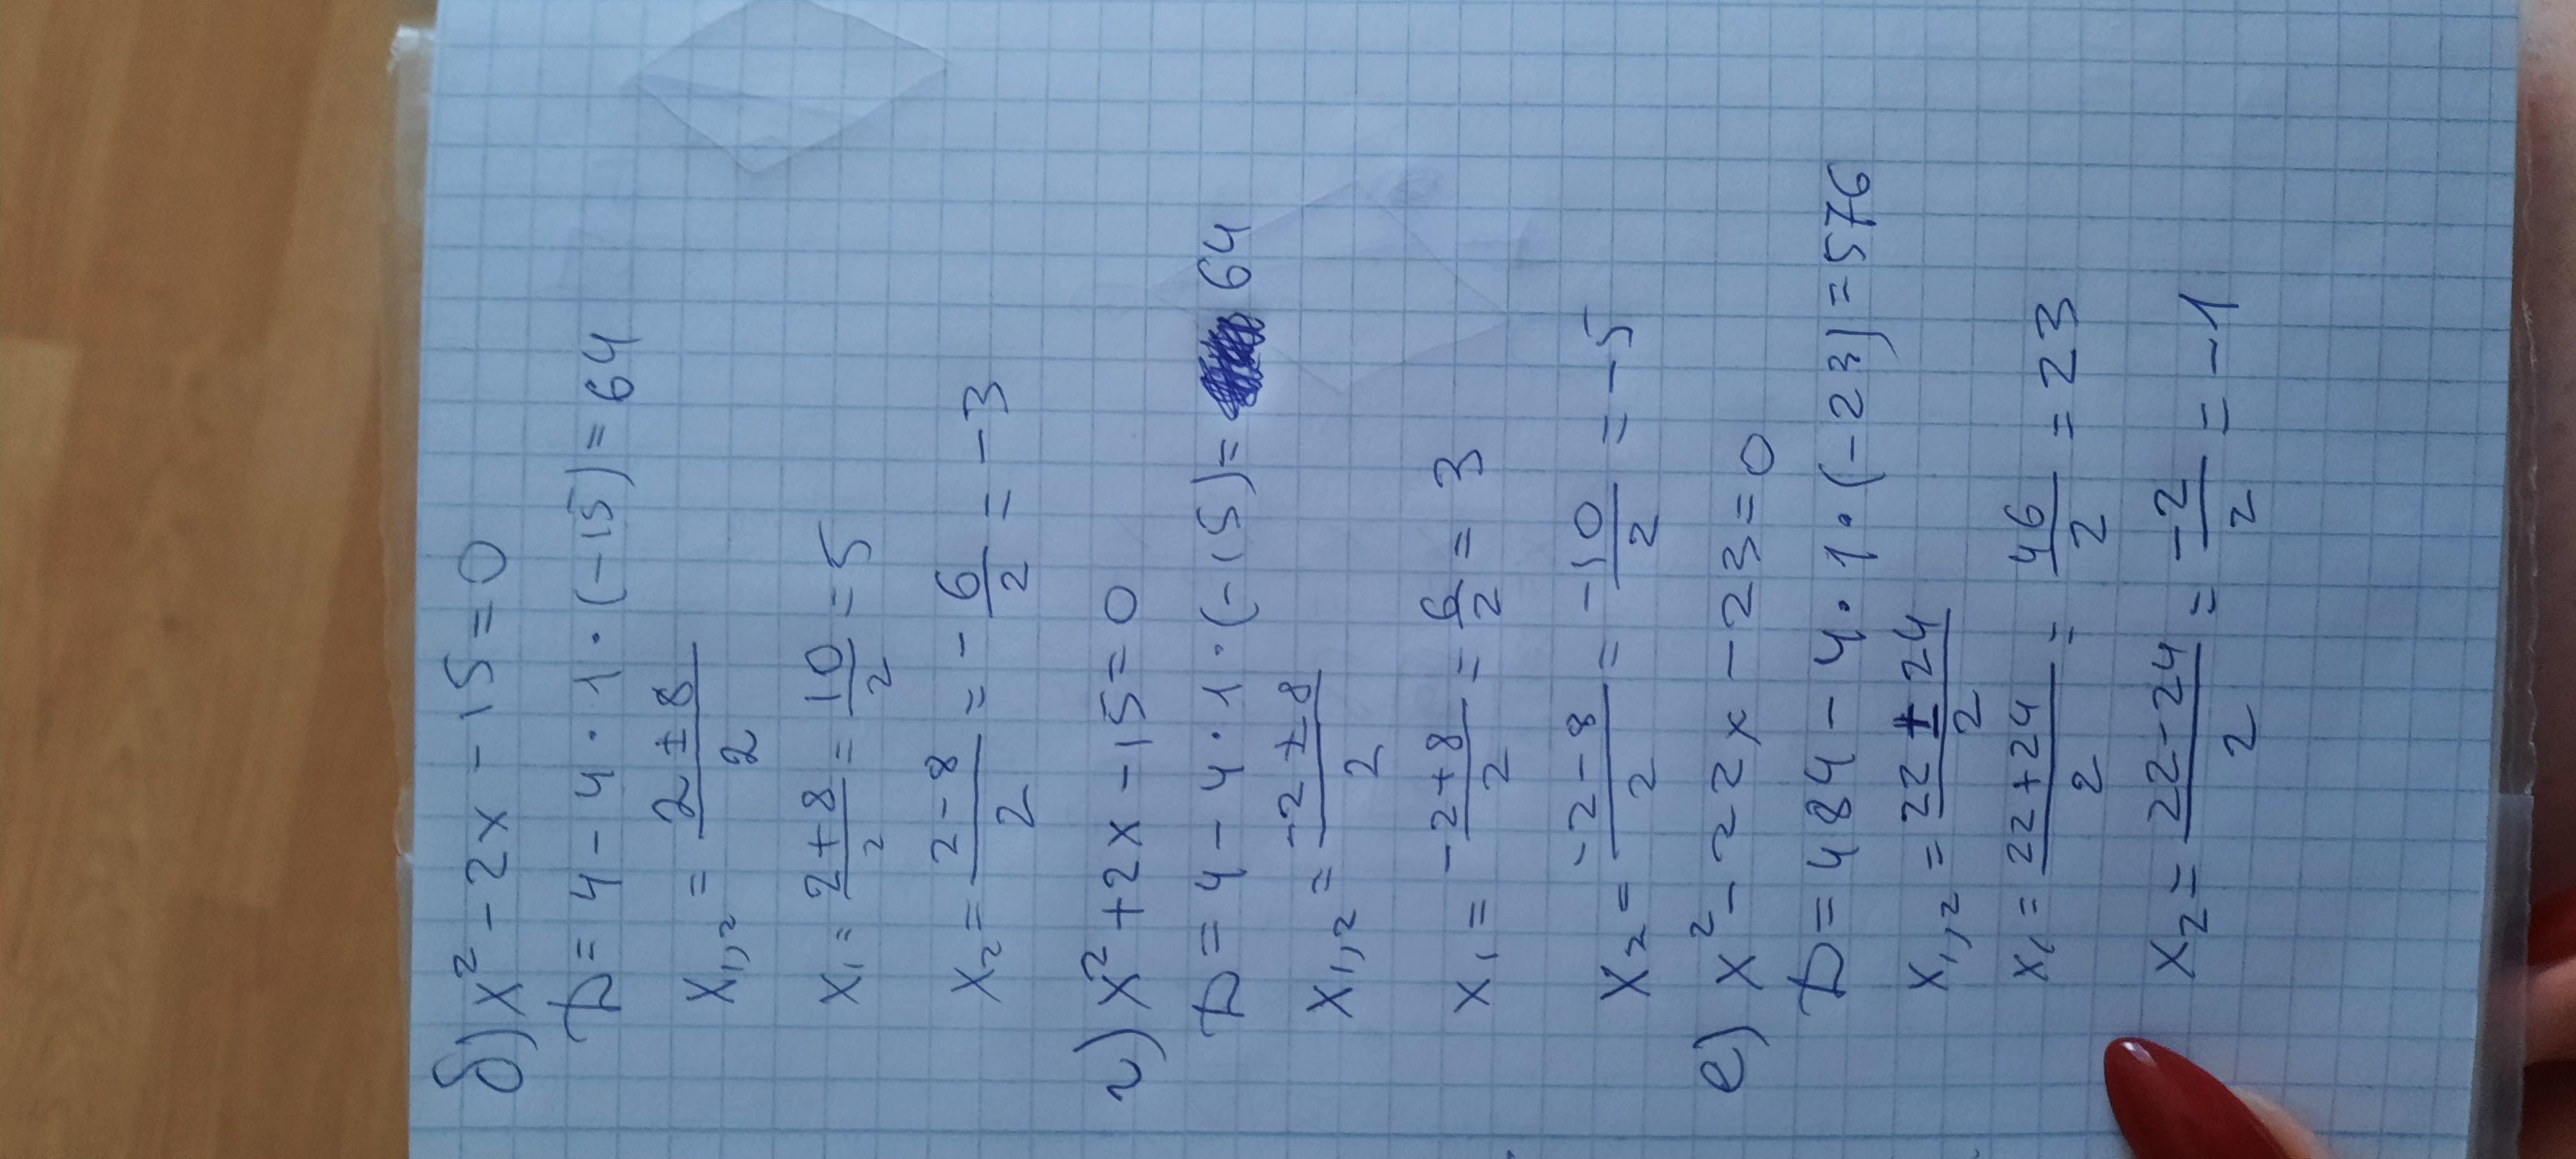 б) x² - 2x - 15 = 0
D = 4 - 4 · 1 · (-15) = 64
x₁,₂ = (2 ± 8)/2
x₁ = (2 + 8)/2 = 10/2 = 5
x₂ = (2 - 8)/2 = - 6/2 = -3
г) x² + 2x - 15 = 0
D = 4 - 4 · 1 · (-15) = 64
x₁,₂ = (-2 ± 8)/2
x₁ = (-2 + 8)/2 = 6/2 = 3
x₂ = (-2 - 8)/2 = -10/2 = -5
е) x² - 22x - 23 = 0
D = 484 - 4 · 1 · (-23) = 576
x₁,₂ = (22 ± 24)/2
x₁ = (22 + 24)/2 = 46/2 = 23
x₂ = (22 - 24)/2 = -2/2 = -1